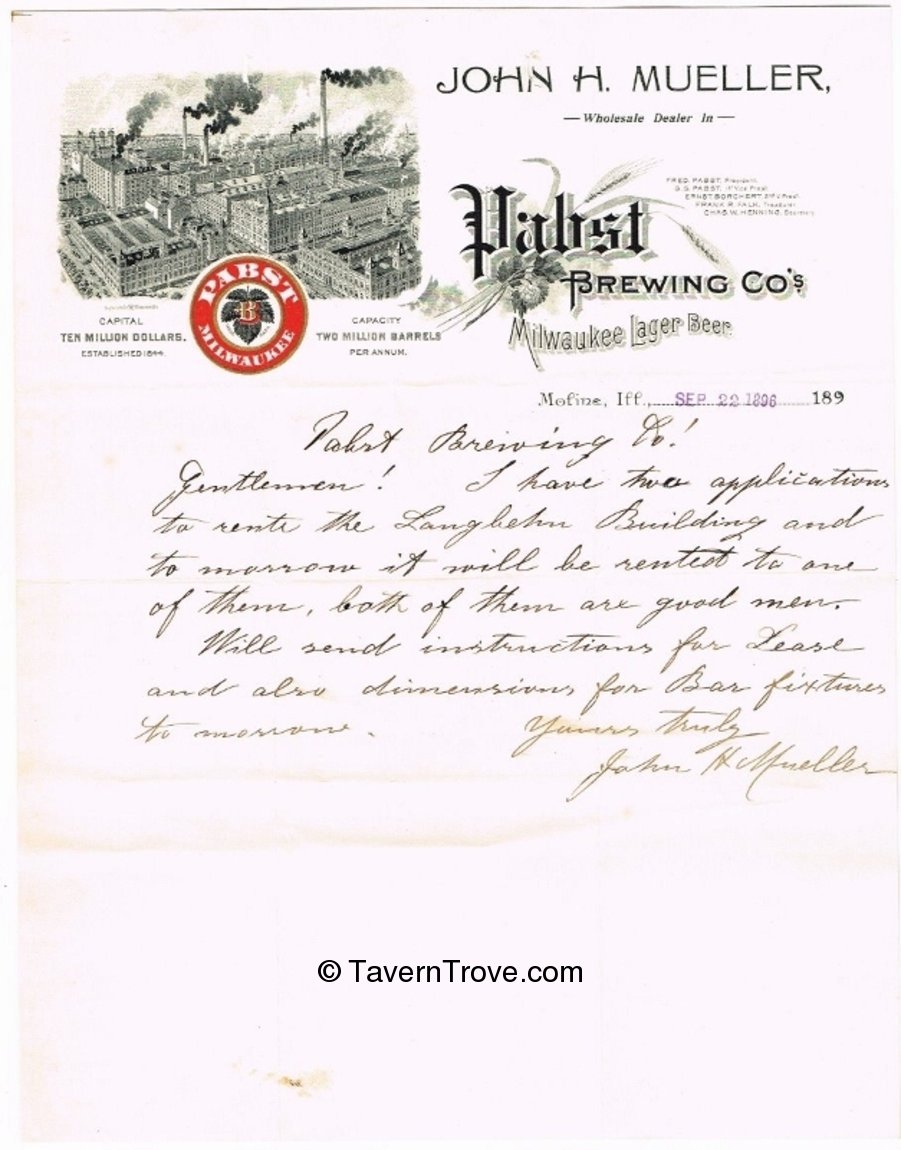 JOHN H. MUELLER,
— Wholesale Dealer In —
FRED. PABST, President.
G. G. PABST, 1st Vice Prest.
ERNST BORCHERT, 2nd V. Prest.
FRANK R. FALK, Treasurer
CHAS. W. HENNING, Secretary
Pabst
BREWING CO'S
Milwaukee Lager Beer
PABST
B
MILWAUKEE
CAPITAL
TEN MILLION DOLLARS.
ESTABLISHED 1844.
CAPACITY
TWO MILLION BARRELS
PER ANNUM.
Moline, Ill., SEP. 22 1896 189
Pabst Brewing Co!
Gentlemen! I have two applications
to rente the Langbehn Building and
to morrow it will be rented to one
of them, both of them are good men.
Will send instructions for Lease
and also dimensions for Bar fixtures
to morrow.
Yours truly
John H Mueller
© TavernTrove.com